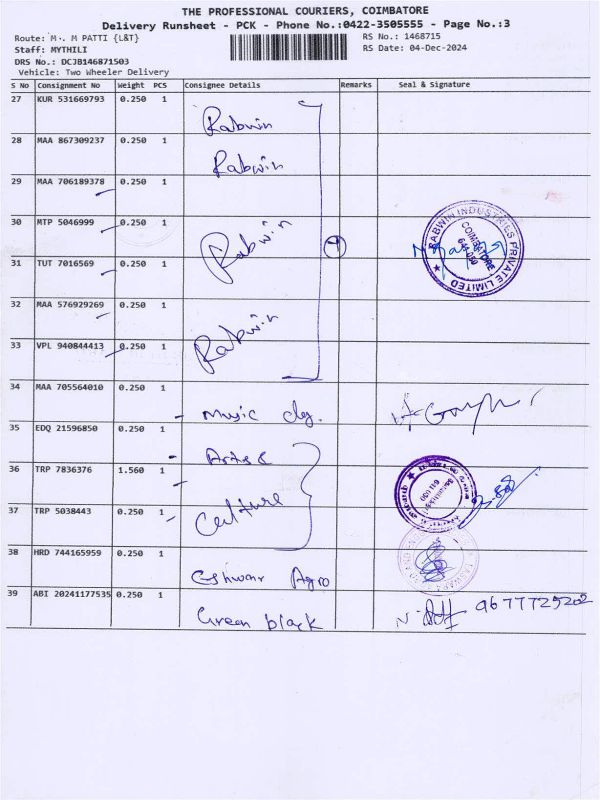 THE PROFESSIONAL COURIERS, COIMBATORE
Delivery Runsheet - PCK - Phone No.:0422-3505555 - Page No.:3
Route: M M PATTI {L&T}
RS No.: 1468715
Staff: MYTHILI
RS Date: 04-Dec-2024
DRS No.: DCJB146871503
Vehicle: Two Wheeler Delivery
S No Consignment No Weight PCS Consignee Details Remarks Seal & Signature
27 KUR 531669793 0.250 1 Rabwin
28 MAA 867309237 0.250 1 Rabwin
29 MAA 706189378 0.250 1
30 MTP 5046999 0.250 1 Rabwin
RABWIN INDUSTRIES PRIVATE LIMITED
COIMBATORE
31 TUT 7016569 0.250 1
32 MAA 576929269 0.250 1
33 VPL 940844413 0.250 1 Rabwin
34 MAA 705564010 0.250 1 Music clg.
35 EDQ 21596850 0.250 1
36 TRP 7836376 1.560 1
37 TRP 5038443 0.250 1 Culture
38 HRD 744165959 0.250 1 Eshwar Agro
39 ABI 20241177535 0.250 1 Green black 9677725202